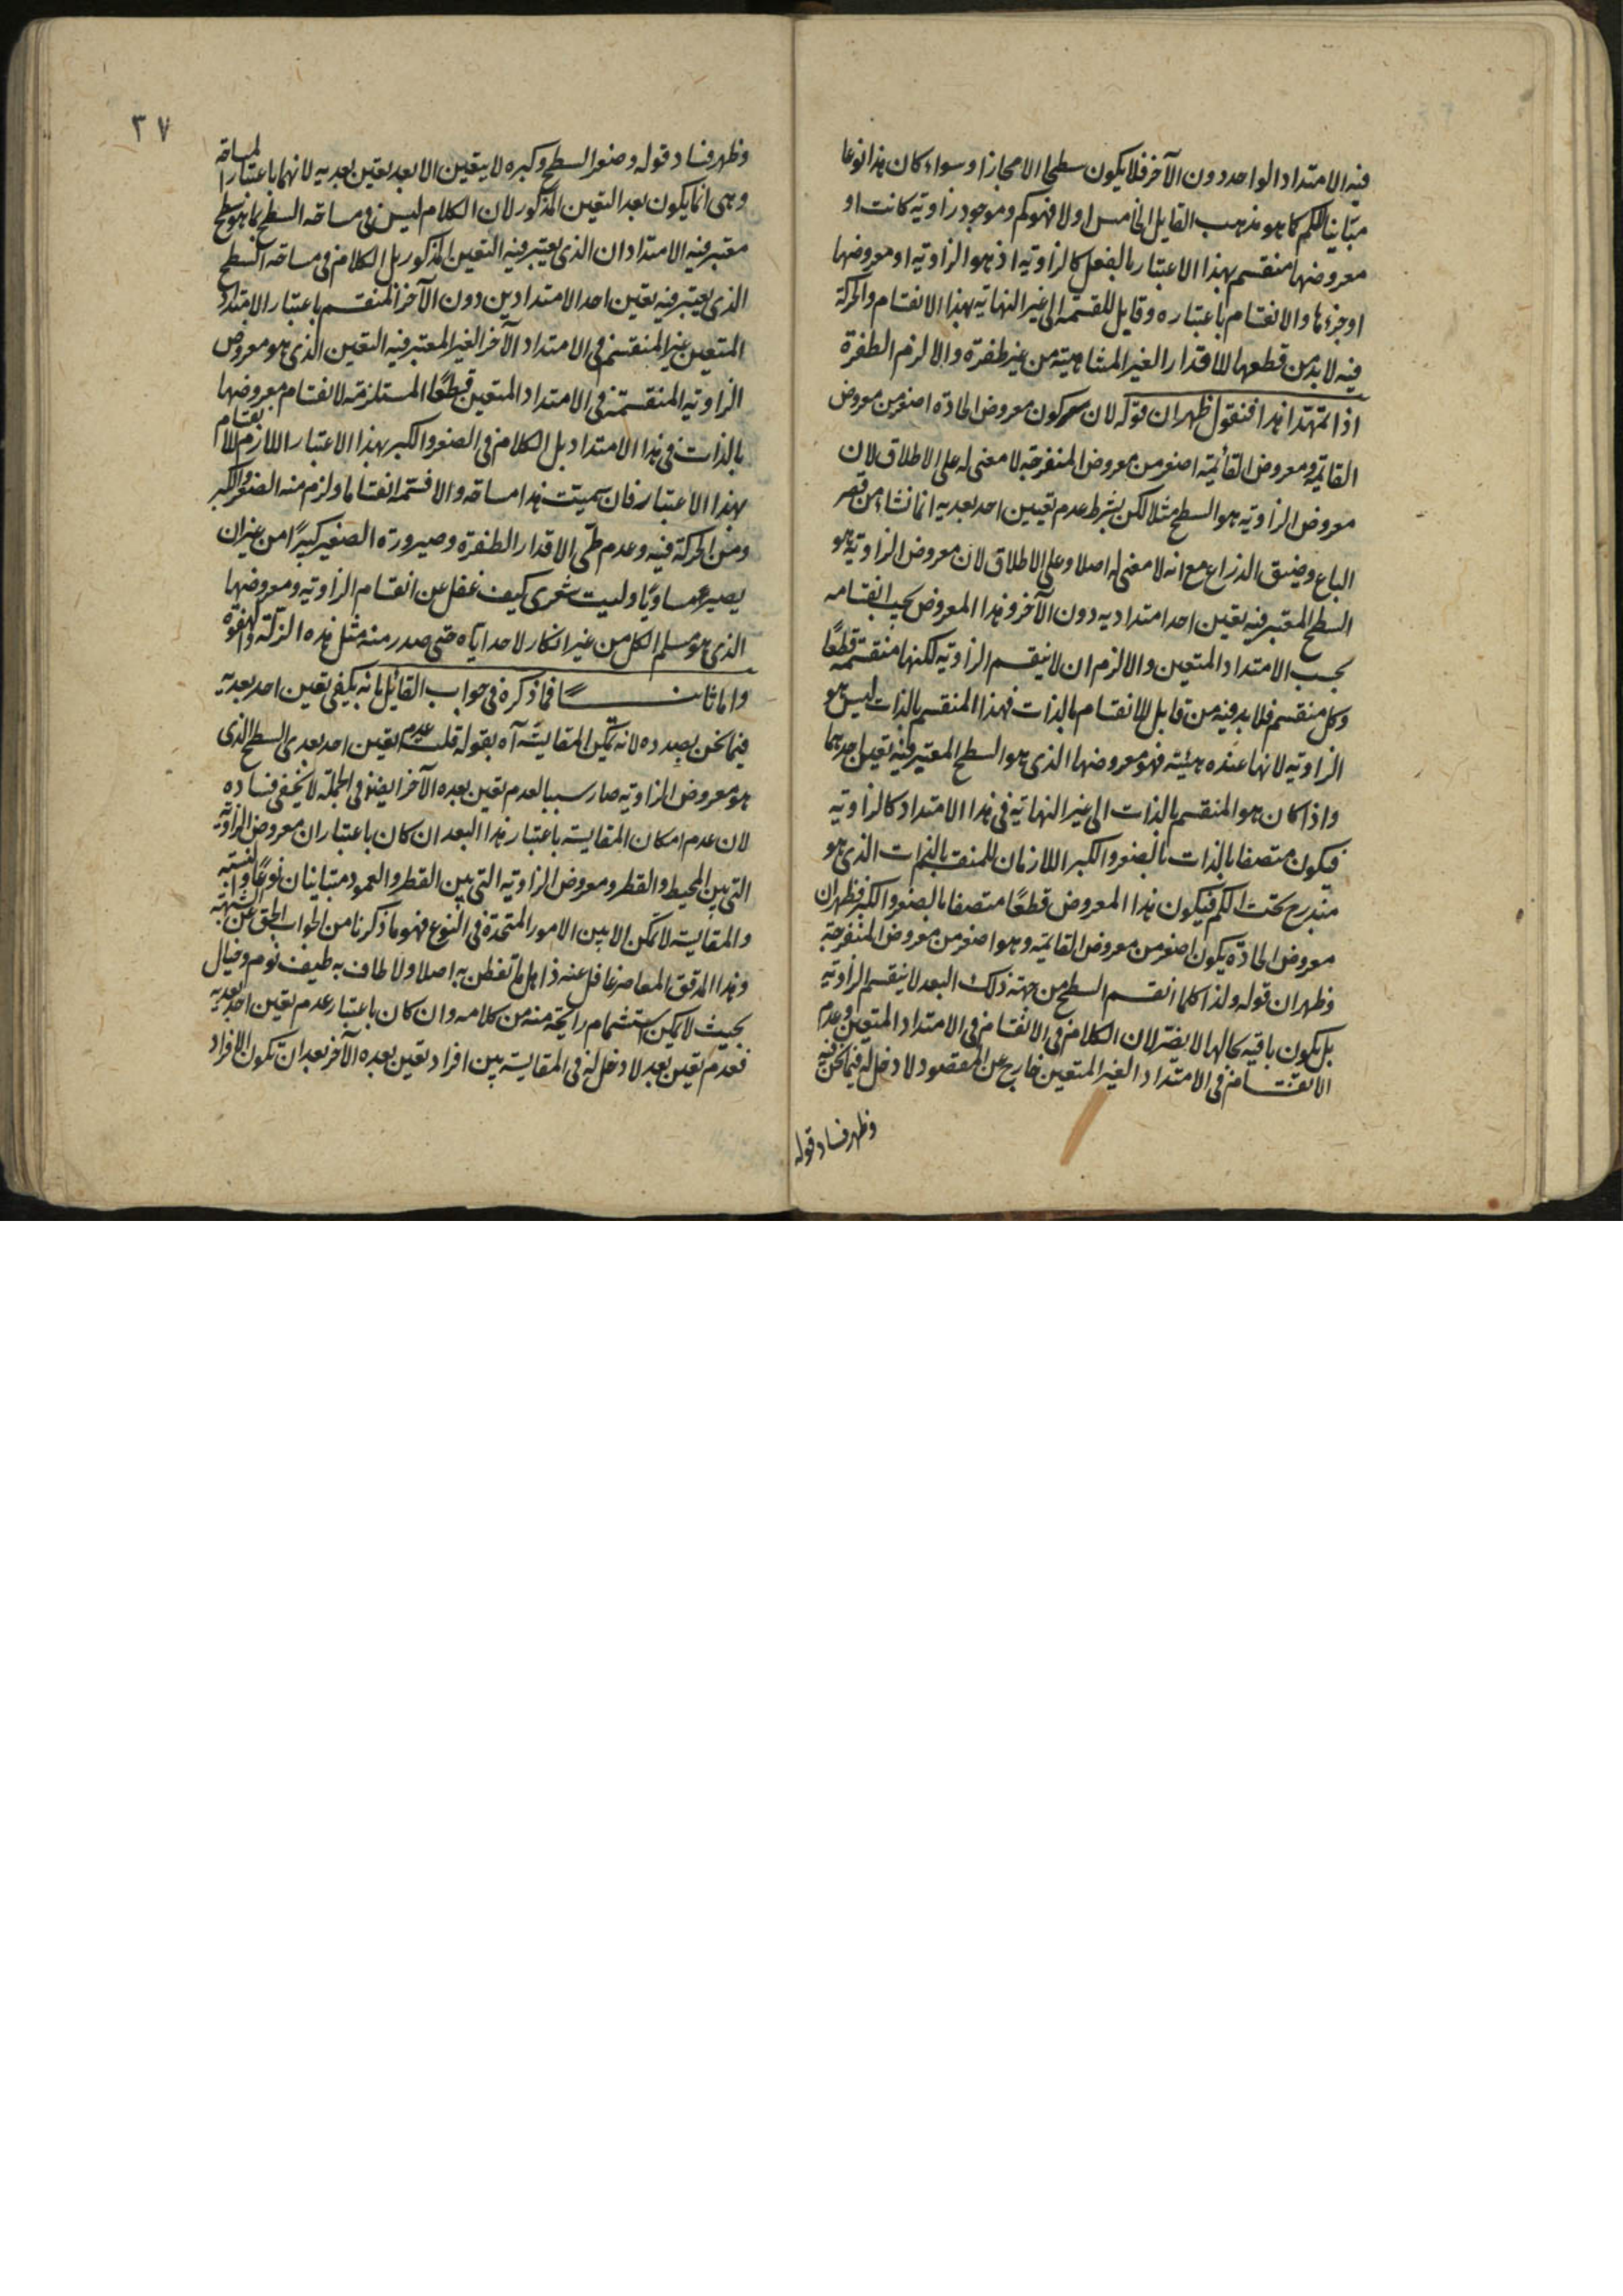 فيه الامتداد الواحد دون الآخر فلا يكون سطحا الا مجازا وسواء كان هذا نوعا
مبايناً للكم كما هو مذهب القايل الخامس اولا فهو كم وموجود زاوية كانت او
معروضها منقسم بهذا الاعتبار بالفعل كالزاوية اذ هو الزاوية او معروضها
او جزءها والانقسام باعتباره وقابل للقسمة الى غير النهاية بهذا الانقسام والحركة
فيه لا بد من قطعها للاقدار الغير المتناهية من غير طفرة والا لزم الطفرة
اذا تمهد هذا فنقول ظهر ان قوله لان كون معروض الحادة اصغر من معروض
القايمة ومعروض القائمة اصغر من معروض المنفرجة لا معنى له على الاطلاق لان
معروض الزاوية هو السطح مثلا لكن بشرط عدم تعيين احد بعديه انما نشاء من قصر
الباع وضيق الذراع مع انه لا معنى له اصلا وعلى الاطلاق لان معروض الزاوية هو
السطح المعتبر فيه تعين احد امتداديه دون الآخر وهذا المعروض يجب انقسامه
بحسب الامتداد المتعين والا لزم ان لا ينقسم الزاوية لكنها منقسمة قطعًا
وكل منقسم فلا بد فيه من قابل للانقسام بالذات فهذا المنقسم بالذات ليس هو
الزاوية لانها عنده هيئة فهو معروضها الذي هو السطح المعتبر فيه تعين احدهما
واذا كان هو المنقسم بالذات الى غير النهاية في هذا الامتداد كالزاوية
فيكون متصفا بالذات بالصغر والكبر اللازمان للمنقسم بالذات الذي هو
مندرج تحت الكم فيكون هذا المعروض قطعًا متصفا بالصغر والكبر فظهر ان
معروض الحادة يكون اصغر من معروض القايمة وهو اصغر من معروض المنفرجة
وظهر ان قوله ولذا كلما انقسم السطح من جهة ذلك البعد لا ينقسم الزاوية
بل يكون باقية بحالها لا يضر لان الكلام في الانقسام في الامتداد المتعين وعدم
الانقسام في الامتداد الغير المتعين خارج عن المقصود لا دخل له فيما نحن فيه
وظهر فساد قوله
٣٧
وظهر فساد قوله وصغر السطح وكبره لا يتعين الا بعد تعين بعديه لانهما باعتبار المساحة
وهي انما يكون بعد التعين المذكور لان الكلام ليس في مساحة السطح بما هو سطح
معتبر فيه الامتدادان الذي يعتبر فيه التعين المذكور بل الكلام في مساحة السطح
الذي يعتبر فيه تعين احد الامتدادين دون الآخر المنقسم باعتبار الامتداد
المتعين غير المنقسم في الامتداد الآخر الغير المعتبر فيه التعين الذي هو معروض
الزاوية المنقسمة في الامتداد المتعين قطعًا المستلزمة لانقسام معروضها
بالذات في هذا الامتداد بل الكلام في الصغر والكبر بهذا الاعتبار اللازم للانقسام
بهذا الاعتبار فان سميت هذا مساحة والا فسمه انقساما ولزم منه الصغر والكبر
ومن الحركة فيه وعدم طي الاقدار الطفرة وصيرورة الصغير كبيرًا من غير ان
يصير مساويًا وليت شعري كيف غفل عن انقسام الزاوية ومعروضها
الذي هو مسلم الكل من غير انكار لاحد اياه حتى صدر منه مثل هذه الزلة والهفوة
واما ثانيـــاً فما ذكره في جواب القائل بانه يكفي تعين احد بعديه
فيما نحن بصدده لانه تمكن المقايسة آه بقوله قلت عدم تعين احد بعدي السطح الذي
هو معروض الزاوية صار سببا لعدم تعين بعده الآخر ايضا في الجملة لا يخفى فساده
لان عدم امكان المقايسة باعتبار هذا البعد ان كان باعتبار ان معروض الزاوية
التي بين المحيط والقطر ومعروض الزاوية التي بين القطر والعمود متباينان نوعًا والنسبة
والمقايسة لا تمكن الا بين الامور المتحدة في النوع فهو ما ذكرنا من الجواب الحق عن الشبهة
وهذا المدقق المعاصر غافل عنه ذاهل ما تفطن به اصلا ولا طاف به طيف نوم وخيال
بحيث لا يمكن استشمام رايحة منه من كلامه وان كان باعتبار عدم تعين احد بعديه
فعدم تعين بعد لا دخل له في المقايسة بين افراد تعين بعده الآخر بعد ان تكون الافراد